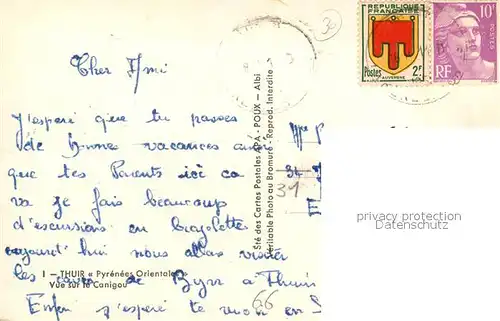 Cher Ami
J'esperè que tu passes
de bonnes vacances
que tes Parents ici ca
va je fais beaucoup
d'escursions en bicyclette
aujourd'hui nous allons visiter
les caves de Byrr à Thuir
Enfin j'esperè te voir en
1 - THUIR « Pyrénées Orientales »
Vue sur le Canigou
Sté des Cartes Postales APA - POUX - Albi
Véritable Photo au Bromure - Reprod. Interdite
REPUBLIQUE
FRANÇAISE
Postes 2F
AUVERGNE
10F
POSTES
RF
34
31
66
privacy protection
Datenschutz